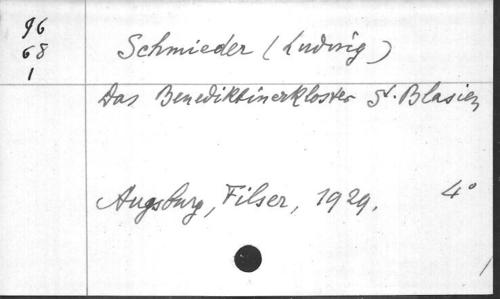 96
68
1
Schmieder (Ludwig)
Das Benediktinerkloster St. Blasien
Augsburg, Filser, 1929. 4°